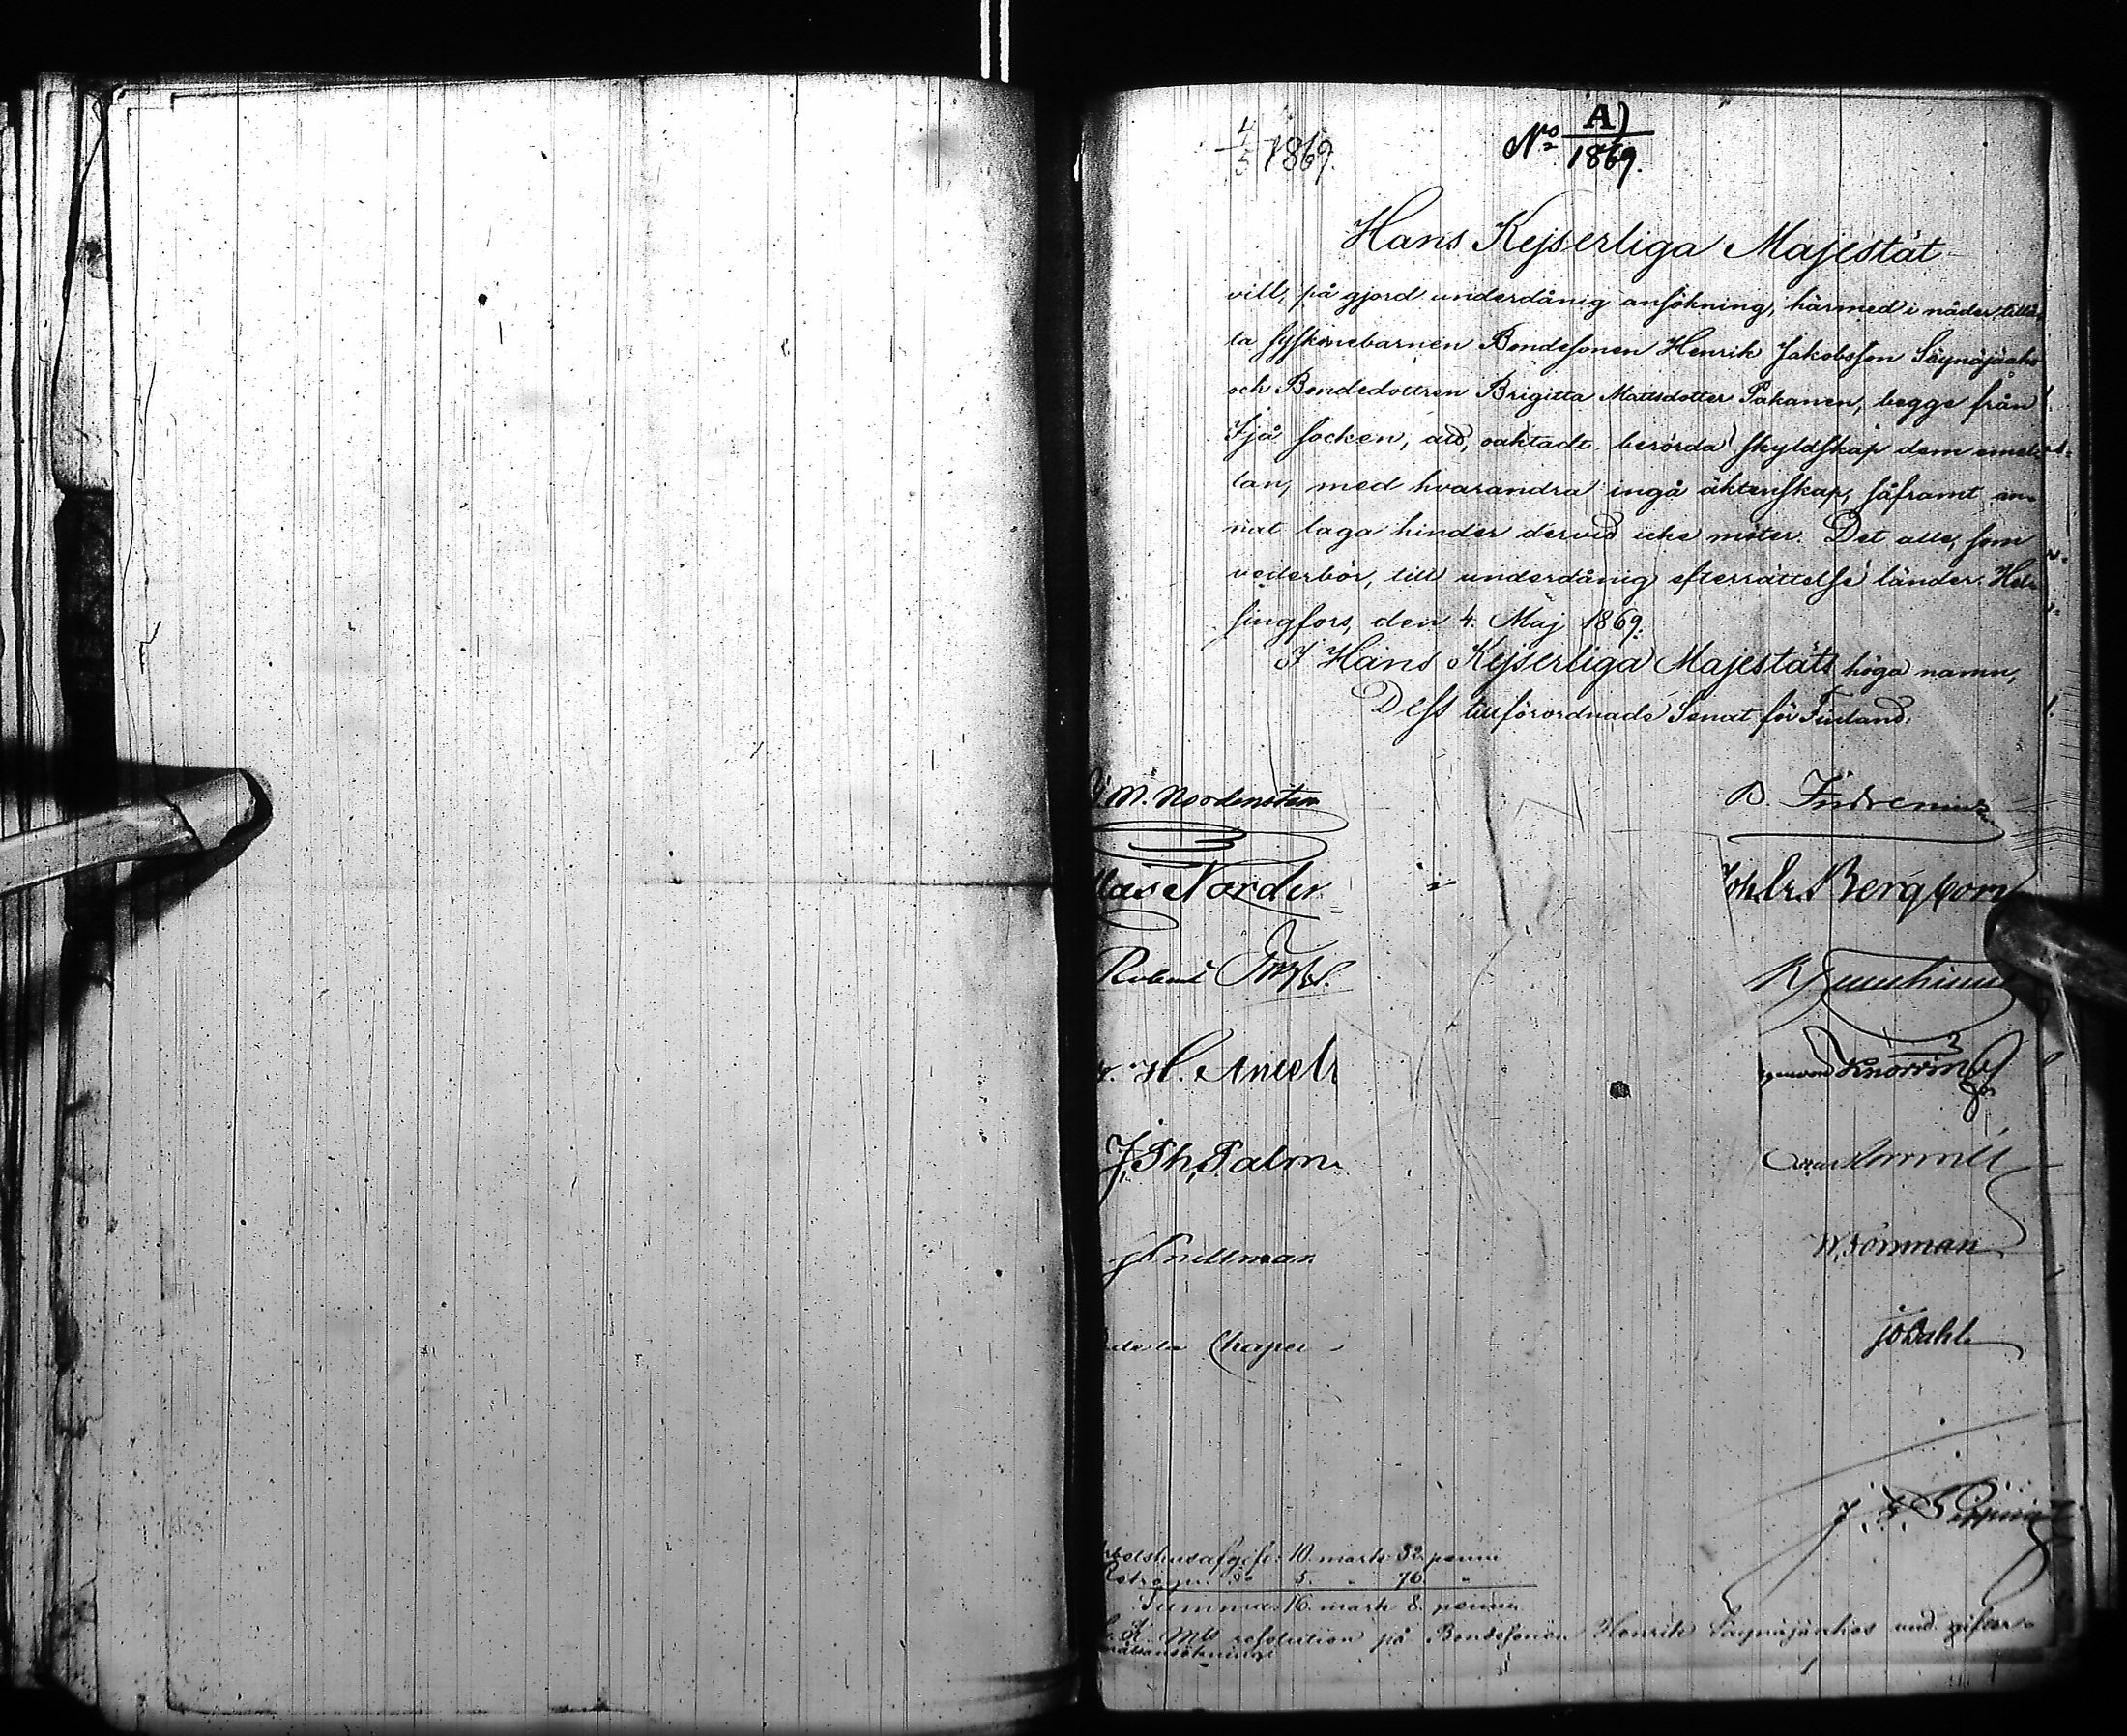 4/5 1869.
No A) / 1869.
Hans Kejserliga Majestät
vill, på gjord underdånig ansökning, härmed i nåder tillå-
ta syskonebarnen Bondesonen Henrik Jakobsson Säynäjäaho
och Bondedottren Brigitta Mattsdotter Pakanen, begge från
Ijå socken, att, oaktadt berörda skyldskap dem emel-
lan, med hvarandra ingå äktenskap, såframt an-
nat laga hinder dervid icke möter. Det alle, som
vederbör, till underdånig efterrättelse länder. Hel-
singfors, den 4. Maj 1869.
I Hans Kejserliga Majestäts höga namn,
Dess tillförordnade Senat för Finland:
J. M. Nordenstam
B. Indrenius
Clas Nordenh
Joh. Er. Bergbom
Robert
H. Antell
Knorring
J. Ph. Palmén
J V Snellman
W. Forsman
de la Chapelle
J O Dahl
J. E. S. Pipping
10. mark 32. penni
do 5. " 76. "
Summa 16. mark 8. penni
K. Mts resolution på Bondesonen Henrik Säynäjäahos und. gifter-
målsansökning.